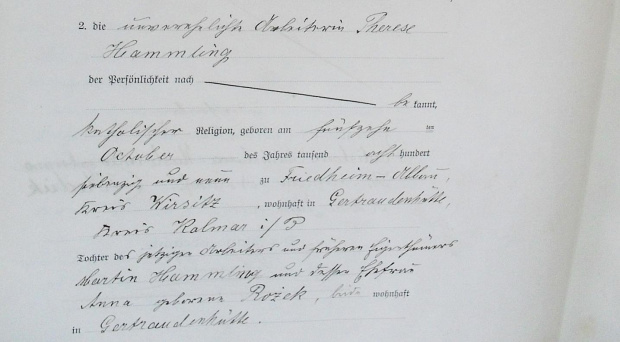 2. die unverehelichte Arbeiterin Therese
Hammling
der Persönlichkeit nach
be kannt,
katholischer Religion, geboren am fünfzehn ten
October des Jahres tausend acht hundert
siebenzig und neun zu Friedheim-Abbau,
Kreis Wirsitz, wohnhaft in Gertraudenhütte,
Kreis Kolmar i/P
Tochter des jetzigen Arbeiters und früheren Eigenthümers
Martin Hammling und dessen Ehefrau
Anna geborene Rożek, beide wohnhaft
in Gertraudenhütte.